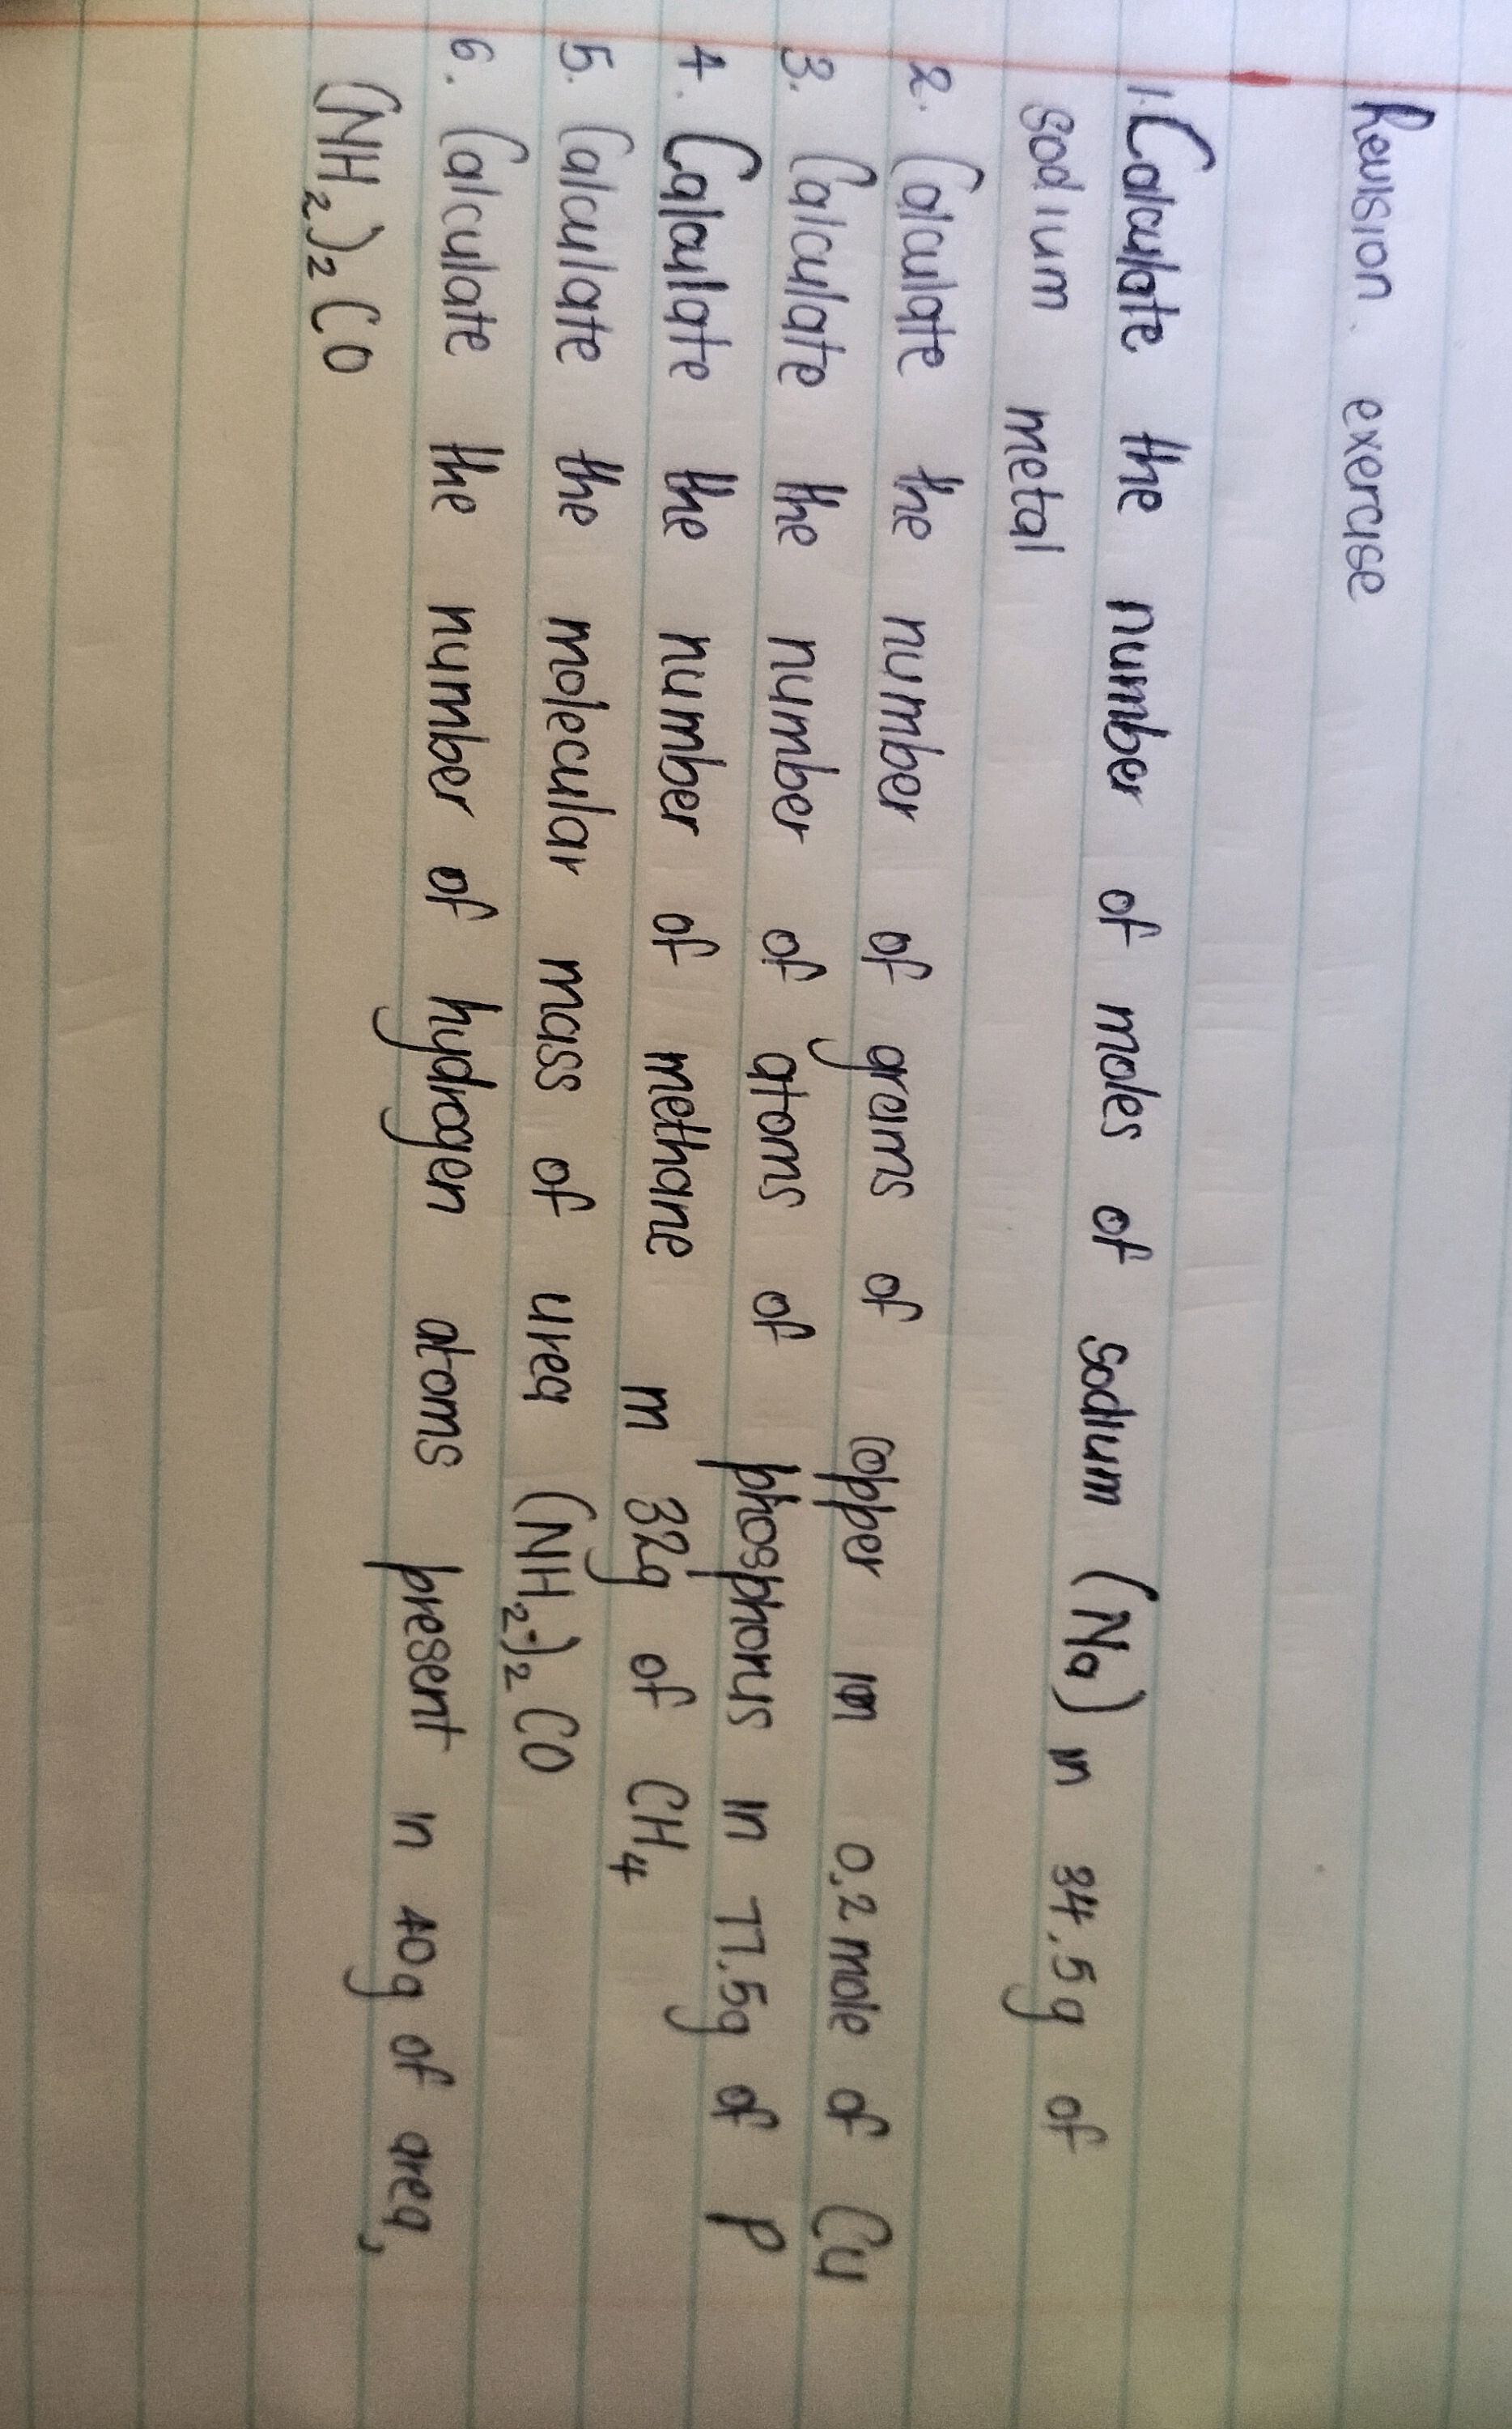 Revision exercise
1. Calculate the number of moles of sodium (Na) in 34.5g of
sodium metal
2. Calculate the number of grams of copper in 0.2 mole of Cu
3. Calculate the number of atoms of phosphorus in 77.5g of P
4. Calculate the number of methane in 32g of CH₄
5. Calculate the molecular mass of urea (NH₂)₂ CO
6. Calculate the number of hydrogen atoms present in 40g of area,
(NH₂)₂ CO